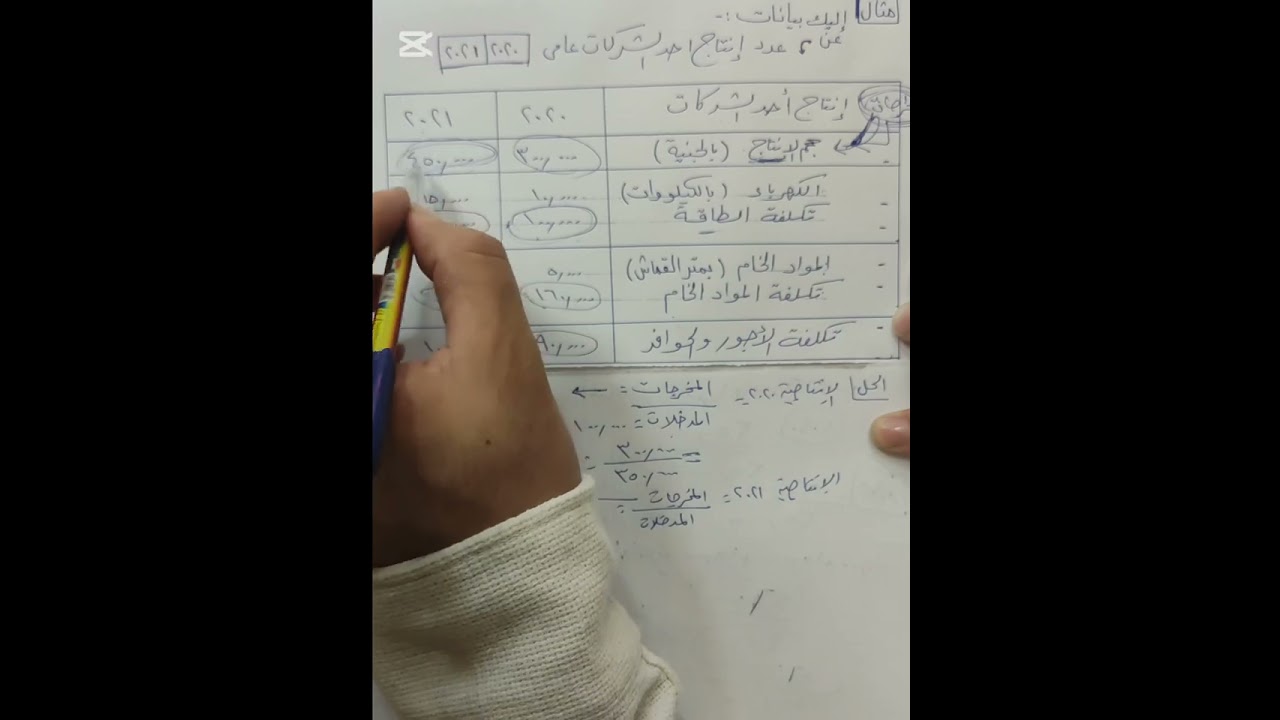 مثال إليك بيانات :-
عن عدد إنتاج احد الشركات عامى ٢٠٢٠ ٢٠٢١
إنتاج أحد الشركات ٢٠٢٠ ٢٠٢١
- حجم الإنتاج (بالجنية) ٣٠٠,٠٠٠ ٤٥٠,٠٠٠
- الكهرباء (بالكيلووات) ١٠,٠٠٠ ١٥,٠٠٠
- تكلفة الطاقة ١٠٠,٠٠٠
- المواد الخام (بمتر القماش) ٥,٠٠٠
- تكلفة المواد الخام ١٦٠,٠٠٠
- تكلفة الأجور والحوافز ٩٠,٠٠٠
الحل الإنتاجية ٢٠٢٠ = المخرجات =
المدخلات = ١٠٠,٠٠٠
= ٣٠٠,٠٠٠ =
٣٥٠,٠٠٠
الإنتاجية ٢٠٢١ = المخرجات =
المدخلات